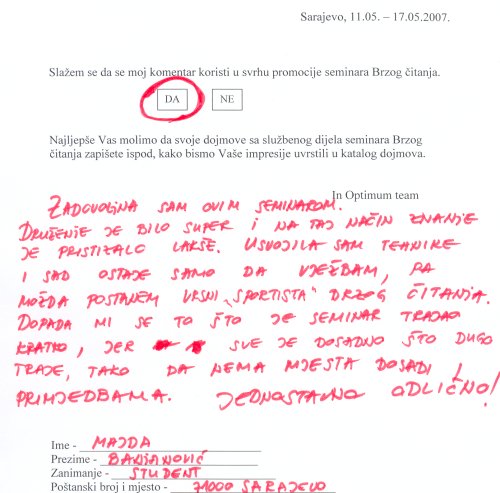 Sarajevo, 11.05. – 17.05.2007.
Slažem se da se moj komentar koristi u svrhu promocije seminara Brzog čitanja.
DA NE
Najljepše Vas molimo da svoje dojmove sa službenog dijela seminara Brzog
čitanja zapišete ispod, kako bismo Vaše impresije uvrstili u katalog dojmova.
In Optimum team
ZADOVOLJNA SAM OVIM SEMINAROM.
DRUŽENJE JE BILO SUPER I NA TAJ NAČIN ZNANJE
JE PRISTIZALO LAKŠE. USVOJILA SAM TEHNIKE
I SAD OSTAJE SAMO DA VJEŽBAM, PA
MOŽDA POSTANEM VRSNI „SPORTISTA" BRZOG ČITANJA.
DOPADA MI SE TO ŠTO JE SEMINAR TRAJAO
KRATKO, JER SVE JE DOSADNO ŠTO DUGO
TRAJE, TAKO DA NEMA MJESTA DOSADI I
PRIMJEDBAMA. JEDNOSTAVNO ODLIČNO!
Ime - MAJDA
Prezime -
Zanimanje - STUDENT
Poštanski broj i mjesto - 71000 SARAJEVO